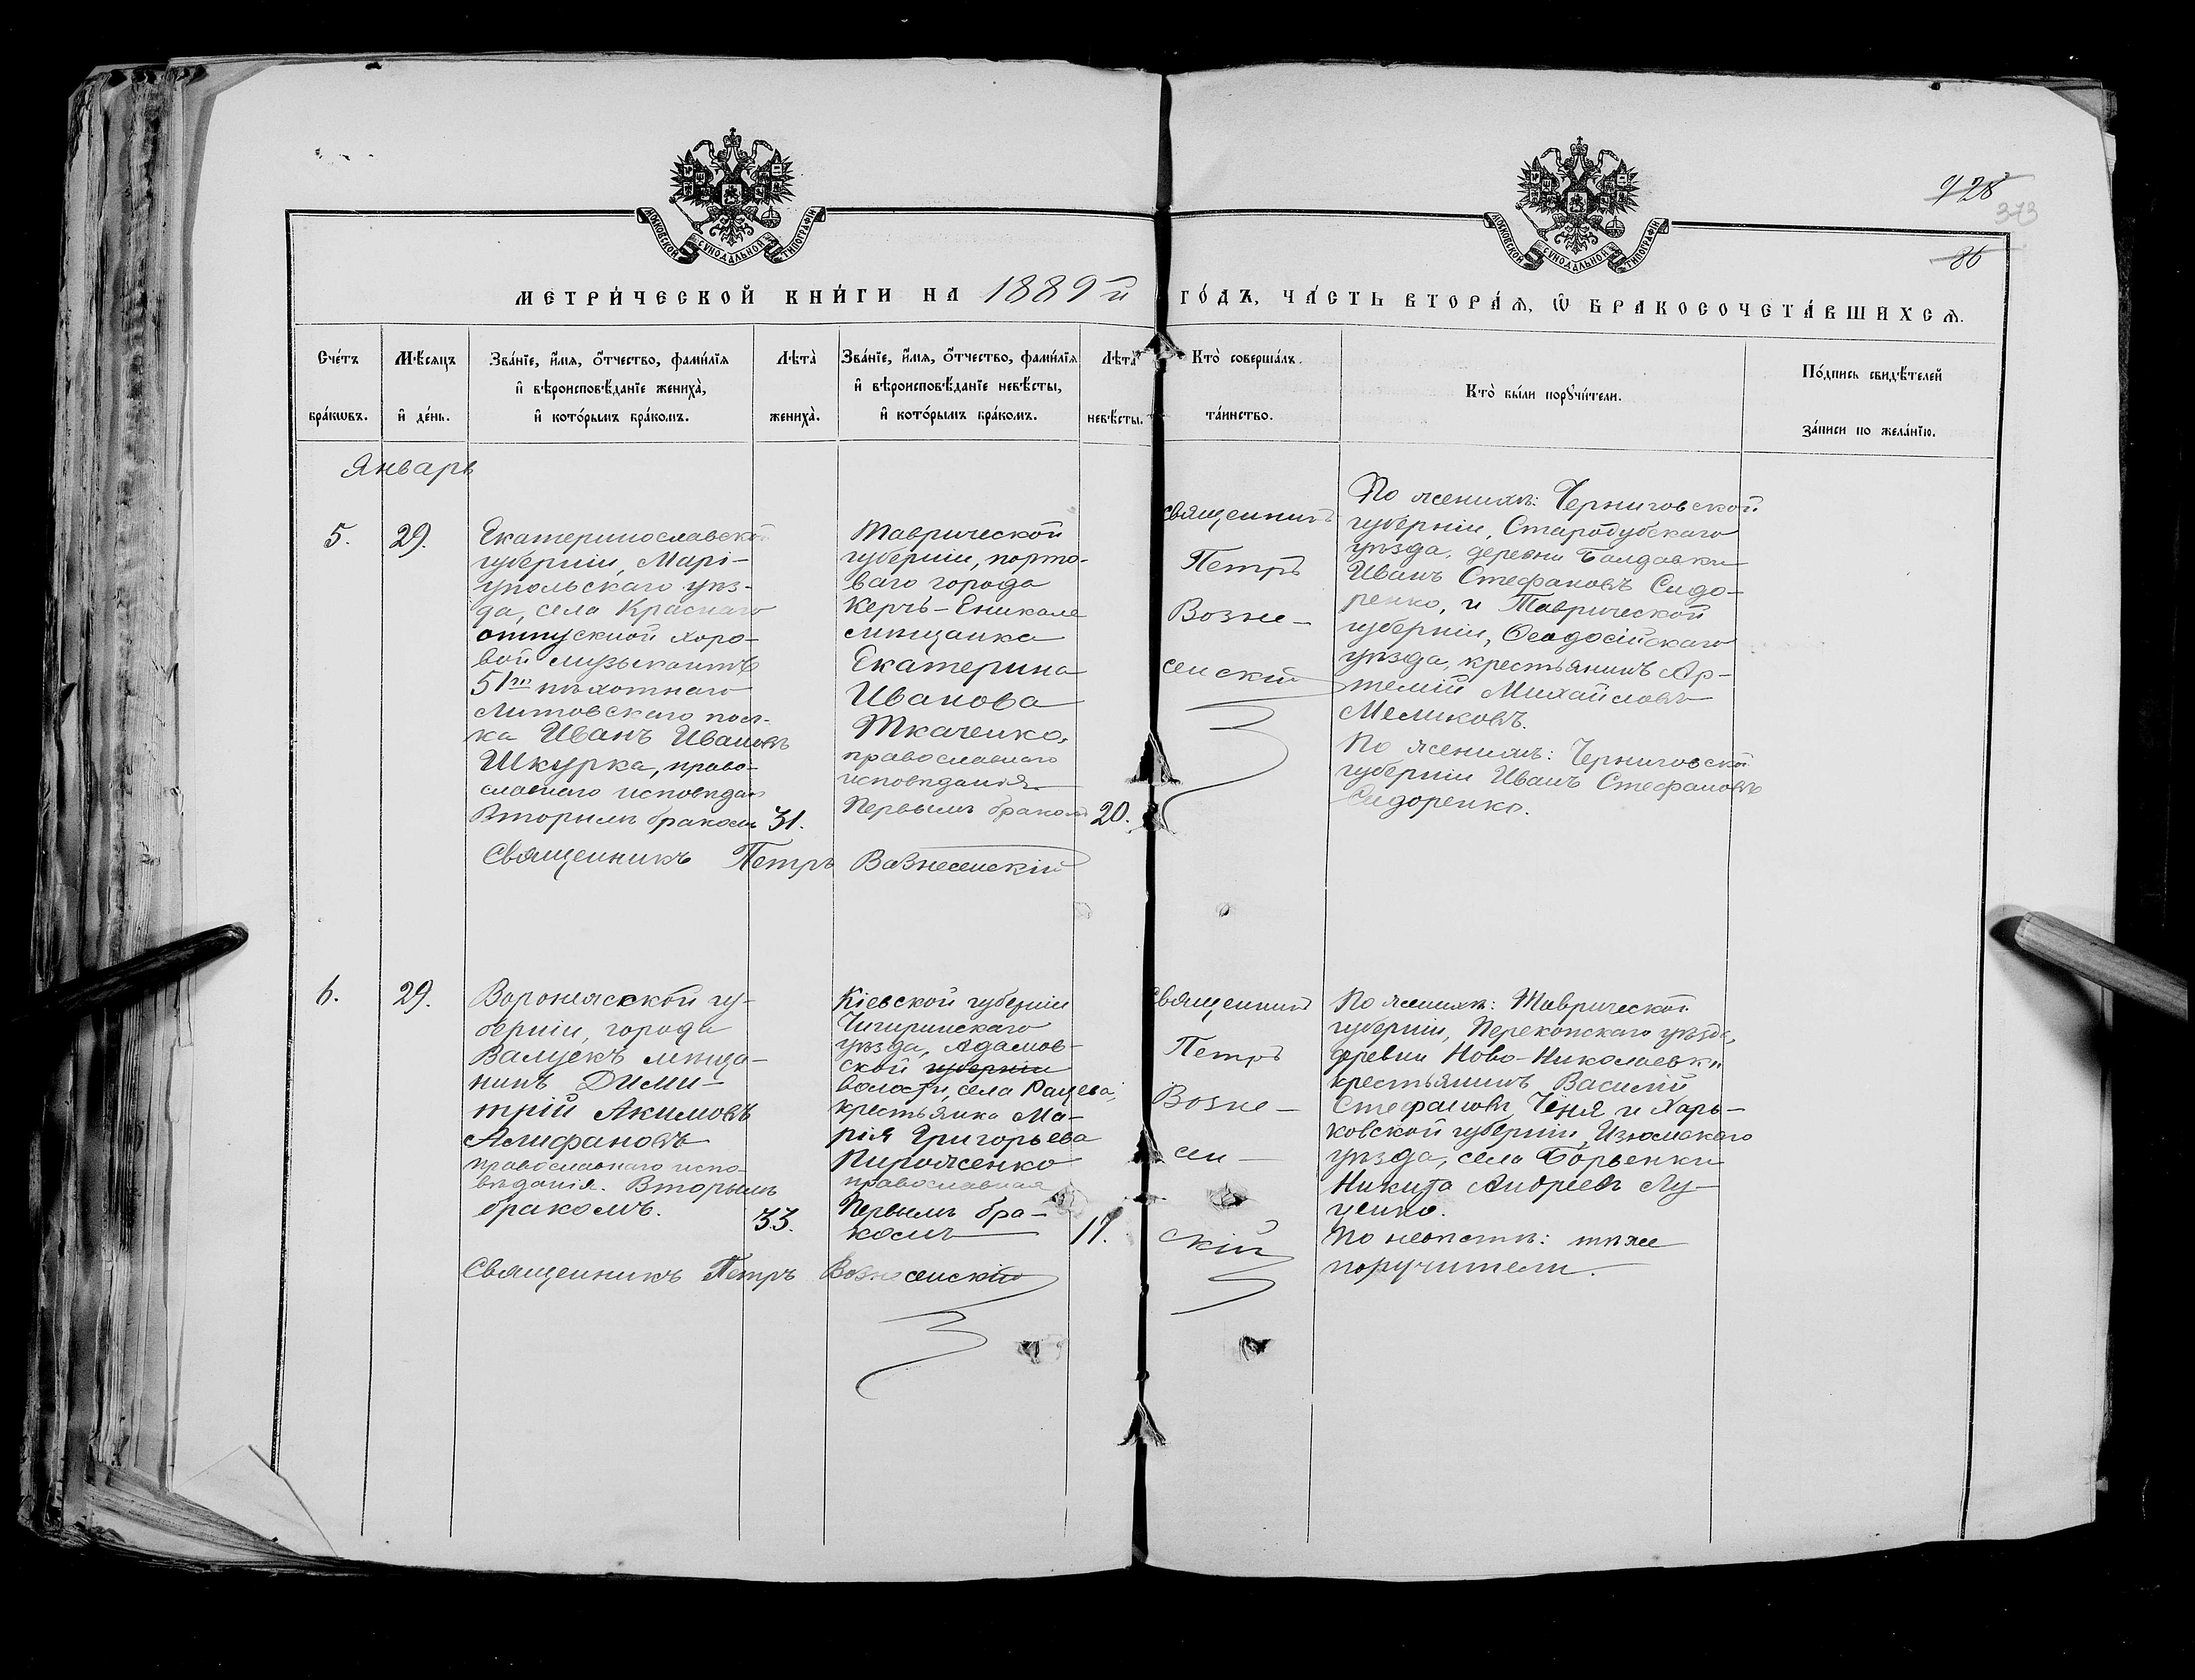 728
373
86
МЕТРИ́ЧЕСКОЙ КНИ́ГИ НА 1889й ГО́ДЪ, ЧА́СТЬ ВТОРА́Я, Ѡ БРАКОСОЧЕТА́ВШИХСЯ.
МОСКОВСКОЙ СѴНОДАЛЬНОЙ ТИПОГРАФІИ
МОСКОВСКОЙ СѴНОДАЛЬНОЙ ТИПОГРАФІИ
Сче́тъ
бра́кѡвъ.
Мѣ́сяцъ
и҆ де́нь.
Зва́нїе, и҆́мя, ѻ҆́тчество, фами́лїя
и҆ вѣроисповѣ́данїе жениха̀,
и҆ кото́рымъ бра́комъ.
Лѣта̀
жениха̀.
Зва́нїе, и҆́мя, ѻ҆́тчество, фами́лїя
и҆ вѣроисповѣ́данїе невѣ́сты,
и҆ кото́рымъ бра́комъ.
Лѣта̀
невѣ́сты.
Кто̀ соверша́лъ
та́инство.
Кто̀ бы́ли порꙋчи́тели.
По́дпись свидѣ́телей
за́писи по жела́нїю.
Январь
5.
29.
Екатеринославской
губерніи, Марі-
упольскаго уѣз-
да, села Краснаго
отпускной хоро-
вой музыкантъ
51го пѣхотнаго
Литовскаго пол-
ка Иванъ Ивановъ
Шкурка, право-
славнаго исповѣдан
Вторымъ бракомъ
31.
Таврической
губерніи, порто-
ваго города
Керчь-Еникале
мѣщанка
Екатерина
Иванова
Ткаченко,
православнаго
исповѣданія
Первымъ бракомъ
20.
Священникъ Петръ Вознесенскій
священникъ
Петръ
Возне-
сенскій
По женихѣ: Черниговской
губерніи, Стародубскаго
уѣзда, деревни Балдавки
Иванъ Стефановъ Сидо-
ренко, и Таврической
губерніи, Ѳеодосійскаго
уѣзда, крестьянинъ Ар-
темій Михайловъ
Меликовъ.
По женихѣ: Черниговской
губерніи Иванъ Стефановъ
Сидоренко.
6.
29.
Воронежской гу-
берніи, города
Валуекъ мѣща-
нинъ Дими-
трій Акимовъ
Алифановъ
православнаго испо-
вѣданія. Вторымъ
бракомъ.
33.
Кіевской губерніи
Чигиринскаго
уѣзда, Адамов-
ской губерніи
волости, села Рацева,
крестьянка Ма-
рія Григорьева
Пироженко
православная
Первымъ бра-
комъ
17.
Священникъ Петръ Вознесенскій
священникъ
Петръ
Возне-
сен-
скій
По женихѣ: Таврической
губерніи, Перекопскаго уѣзда,
деревни Ново-Николаевки
крестьянинъ Василій
Стефановъ Чѣня и Харь-
ковской губерніи, Изюмскаго
уѣзда, села Борвенки
Никита Андреевъ Лу-
ценко.
По невѣстѣ: тѣже
поручители.